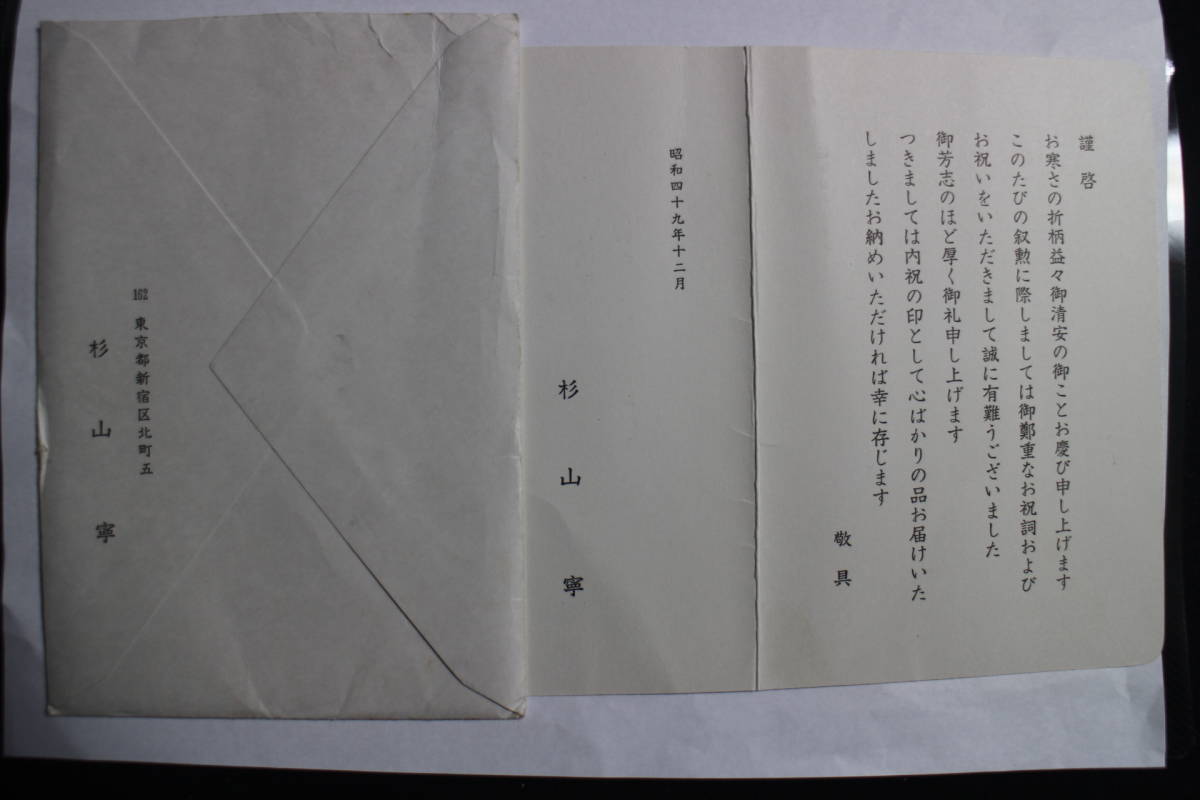 謹啓
お寒さの折柄益々御清安の御ことお慶び申し上げます
このたびの叙勲に際しましては御鄭重なお祝詞および
お祝いをいただきまして誠に有難うございました
御芳志のほど厚く御礼申し上げます
つきましては内祝の印として心ばかりの品お届けいた
しましたお納めいただければ幸に存じます
敬具
昭和四十九年十二月
杉山寧
162 東京都新宿区北町五
杉山寧